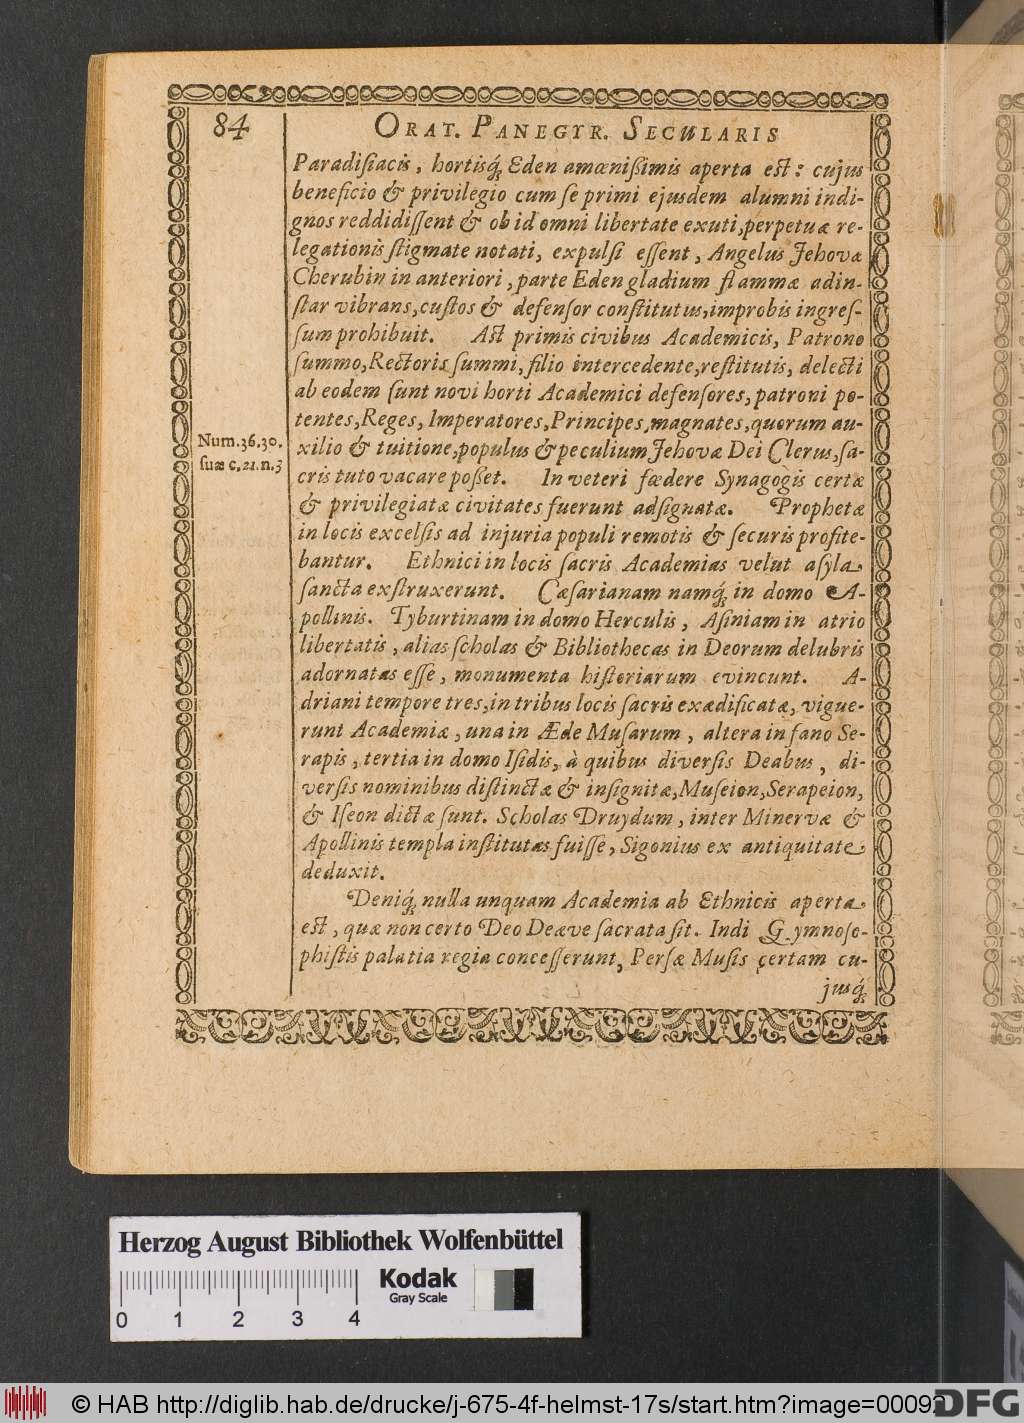 84
ORAT. PANEGYR. SECULARIS
Paradiſiacis, hortisq́; Eden amœniſſimis aperta est: cujus
beneficio & privilegio cum ſe primi ejusdem alumni indi-
gnos reddidiſſent & ob id omni libertate exuti, perpetuæ re-
legationis ſtigmate notati, expulſi eſſent, Angelus Jehovæ
Cherubin in anteriori, parte Eden gladium flammæ adin-
ſtar vibrans, cuſtos & defenſor conſtitutus, improbis ingreſ-
ſum prohibuit. Aſt primis civibus Academicis, Patrono
ſummo, Rectoris ſummi, filio intercedente, reſtitutis, delecti
ab eodem ſunt novi horti Academici defenſores, patroni po-
tentes, Reges, Imperatores, Principes, magnates, quorum au-
xilio & tuitione, populus & peculium Jehovæ Dei Clerus, ſa-
cris tuto vacare poßet. In veteri fœdere Synagogis certæ
& privilegiatæ civitates fuerunt adſignatæ. Prophetæ
in locis excelſis ad injuria populi remotis & ſecuris profite-
bantur. Ethnici in locis ſacris Academias velut aſyla
ſancta exſtruxerunt. Cæſarianam namq́; in domo A-
pollinis. Tyburtinam in domo Herculis, Aſiniam in atrio
libertatis, alias ſcholas & Bibliothecas in Deorum delubris
adornatas eſſe, monumenta hiſteriarum evincunt. A-
driani tempore tres, in tribus locis ſacris exædificatæ, vigue-
runt Academiæ, una in Æde Muſarum, altera in fano Se-
rapis, tertia in domo Iſidis, à quibus diverſis Deabus, di-
verſis nominibus diſtinctæ & inſignitæ, Muſeion, Serapeion,
& Iſeon dictæ ſunt. Scholas Druydum, inter Minervæ &
Apollinis templa inſtitutas fuiſſe, Sigonius ex antiquitate
deduxit.
Deniq́; nulla unquam Academia ab Ethnicis aperta
eſt, quæ non certo Deo Deæve ſacrata ſit. Indi Gymnoſo-
phiſtis palatia regia conceſſerunt, Perſæ Muſis certam cu-
jusq́;
Num. 36.30.
ſuæ c. 21. n. 3
Herzog August Bibliothek Wolfenbüttel
Kodak
Gray Scale
0 1 2 3 4
© HAB http://diglib.hab.de/drucke/j-675-4f-helmst-17s/start.htm?image=00092
DFG